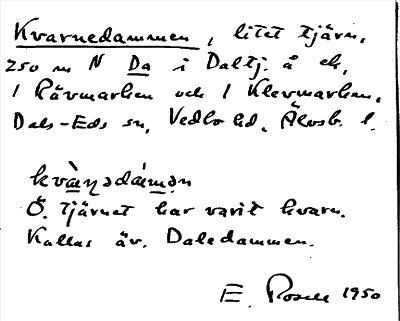 Kvarnedammen, litet tjärn,
250 m N Da i Daltj. å ek,
1 Rävmarken och 1 Klevmarken,
Dals-Eds sn, Vedbo hd, Älvsb. l.
kvà̱ṇədá̱mən
Ö. tjärnet har varit kvarn.
Kallas äv. Daledammen.
E. Rosell 1950